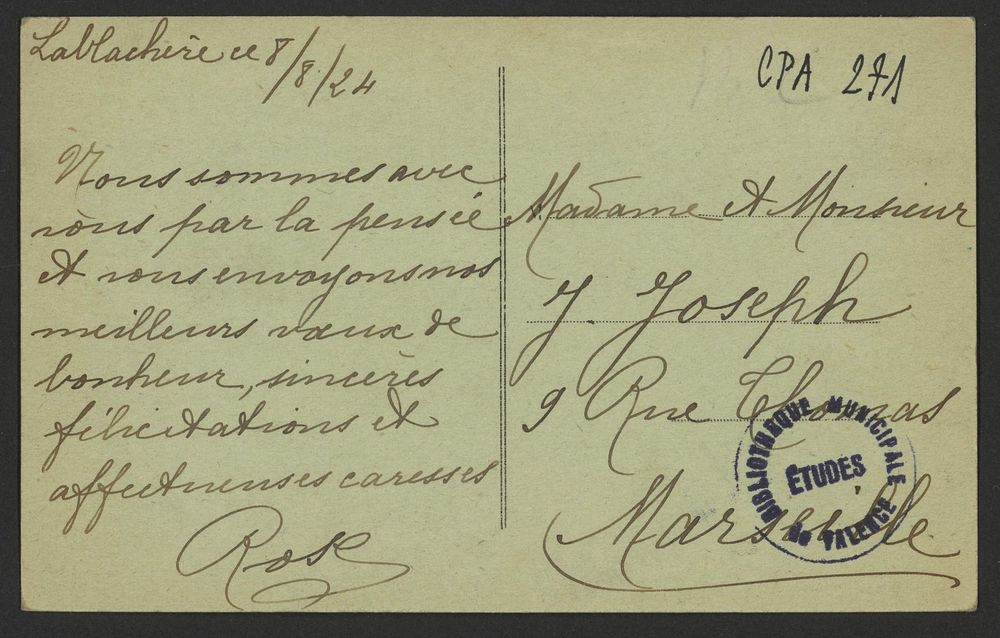 Lablachère ce 8/8/24
Nous sommes avec
vous par la pensée
et vous envoyons nos
meilleurs vœux de
bonheur, sincères
félicitations et
affectueuses caresses
Rose
CPA 271
Madame et Monsieur
J. Joseph
9 Rue Thomas
Marseille
BIBLIOTHEQUE MUNICIPALE
ETUDES
DE VALENCE